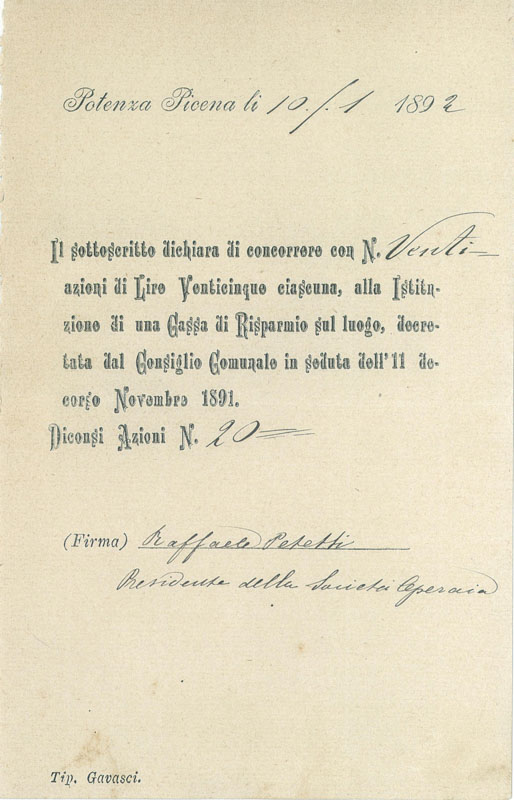 Potenza Picena li 10/1 1892
Il sottoscritto dichiara di concorrere con N. Venti
azioni di Lire Venticinque ciascuna, alla Istitu-
zione di una Cassa di Risparmio sul luogo, decre-
tata dal Consiglio Comunale in seduta dell'11 de-
corso Novembre 1891.
Diconsi Azioni N. 20
(Firma) Raffaele Petetti
Presidente della Società Operaia
Tip. Gavasci.